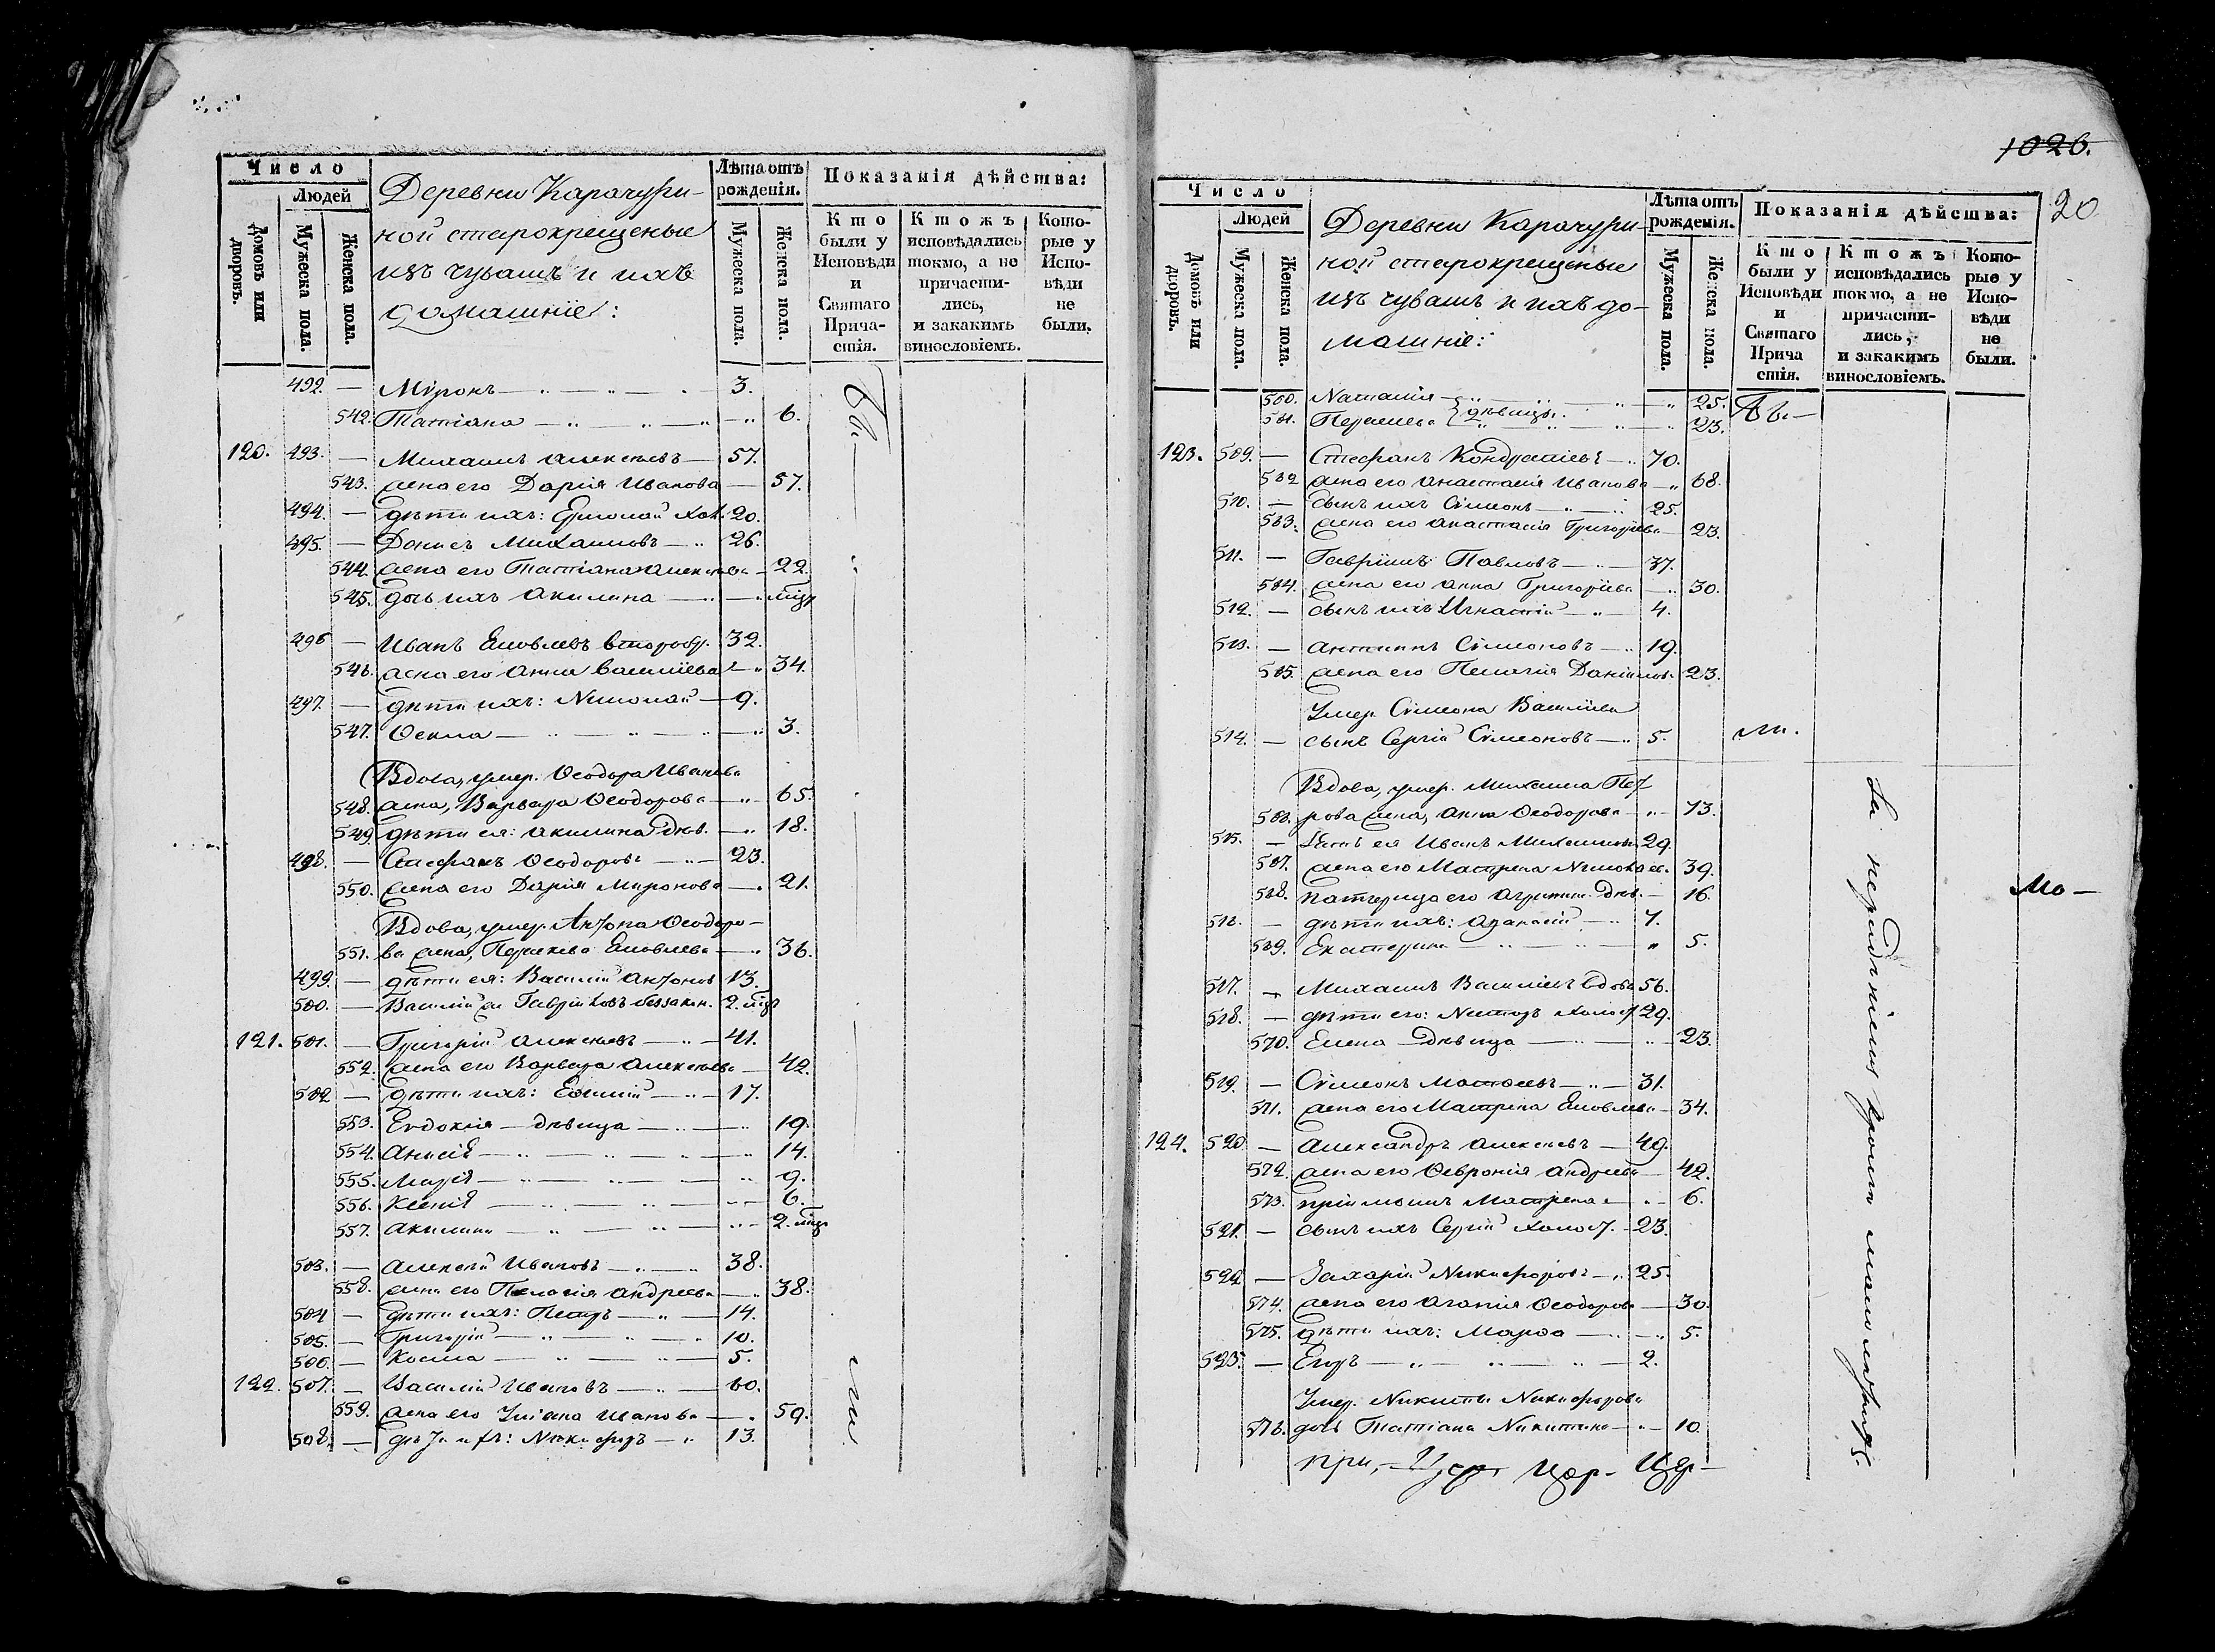 Число
Людей
Домовъ или дворовъ.
Мужеска пола.
Женска пола.
Деревни Карачури-
ной старокрещеные
изъ чувашъ и ихъ
домашніе:
Лѣта отъ рожденія.
Мужеска пола.
Женска пола.
Показанія дѣйства:
Кто были у Исповѣди и Святаго Причастія.
Ктожъ исповѣдались токмо, а не причастились, и закакимъ винословіемъ.
Которые у Исповѣди не были.
492. — Мѵронъ — 3.
542. Татіана — 6.
120. 493. — Михаилъ Алексѣевъ — 57.
543. жена его Дарія Иванова — 57.
494. — дѣти ихъ: Ермолай Хол. 20.
495. — Денисъ Михаиловъ — 26.
544. жена его Татіана Алексѣева — 22.
545. дочь ихъ Акилина — мѣц
496 — Иванъ Яковлевъ 32.
546. жена его Анна Василіева — 34.
497. — дѣти ихъ: Николай — 9.
547. Ѳекла — 3.
Вдова, умер. Ѳеодора Иванова
548. жена, Варвара Ѳеодорова — 65.
549. дѣти ея: Акилина дѣв. — 18.
498. — Стефанъ Ѳеодоровъ — 23.
550. жена его Дарія Миронова — 21.
Вдова, умер. Антона Ѳеодоро-
551. ва жена, Параскева Яковлева — 36.
499. — дѣти ея: Василій Антонов 13.
500. — Василій Гавріиловъ незакон. 2. мѣц
121. 501. — Григорій Алексѣевъ — 41.
552. жена его Варвара Алексѣева — 42.
502 — дѣти ихъ: Еѳимій — 17.
553. Евдокія — дѣвица — 19.
554. Анисія — 14.
555. Марія — 9.
556. Ксенія — 6.
557. Акилина — 2. мѣц
503. — Алексѣй Ивановъ — 38.
558. жена его Пелагія Андреева — 38.
504 — дѣти ихъ: Петръ — 14.
505. — Григорій — 10.
506. — Косма — 5.
122. 507. — Василій Ивановъ — 60.
559. жена его Уліана Иванова — 59.
508. — дѣти ихъ: Никифоръ — 13.
1026.
20
Число
Людей
Домовъ или дворовъ.
Мужеска пола.
Женска пола.
Деревни Карачури-
ной старокрещеные
изъ чувашъ и ихъ до-
машніе:
Лѣта отъ рожденія.
Мужеска пола.
Женска пола.
Показанія дѣйства:
Кто были у Исповѣди и Святаго Причастія.
Ктожъ исповѣдались токмо, а не причастились, и закакимъ винословіемъ.
Которые у Исповѣди не были.
560. Наталія — 25.
561. Параскева } дѣвицы — 23.
123. 509. — Стефанъ Кондратіевъ — 70.
562 жена его Анастасія Иванова — 68.
510. — сынъ ихъ Сѵмеонъ — 25.
563. жена его Анастасія Григоріева — 23.
511. — Гавріилъ Павловъ — 37.
564. жена его Анна Григоріева — 30.
512. — сынъ ихъ Игнатій — 4.
513. — Антипъ Сѵмеоновъ — 19.
565. жена его Пелагія Даніилов. 23.
Умер. Сѵмеона Василіева
514. — сынъ Сергій Сѵмеоновъ — 5.
Вдова, умер. Михаила Пет
566. рова жена, Анна Ѳеодорова — 73.
515. — сынъ ея Иванъ Михаиловъ 29.
567. жена его Матрена Николаев. 39.
568. падчерица его Агрипина дѣв. — 16.
516. — дѣти ихъ: Аѳанасій — 7.
569. Екатерина — 5.
517. — Михаилъ Василіевъ вдовъ 56.
518. — дѣти его: Несторъ холост 29.
570. Елена — дѣвица — 23.
519. — Сѵмеонъ Матѳеевъ — 31.
571. жена его Матрена Яковлева — 34.
124. 520 — Александръ Алексѣевъ — 49.
572. жена его Ѳевронія Андреева — 42.
573. пріемышъ Матрена — 6.
521. — сынъ ихъ Сергій холост. — 23.
522 — Захарій Никифоровъ — 25.
574. жена его Агафія Ѳеодорова — 30.
575. дѣти ихъ: Марѳа — 5.
523. — Егоръ — 2.
Умер. Никиты Никифорова
576. дочь Татіана Никитина — 10.
за нерадѣніемъ кромѣ малолѣтнихъ